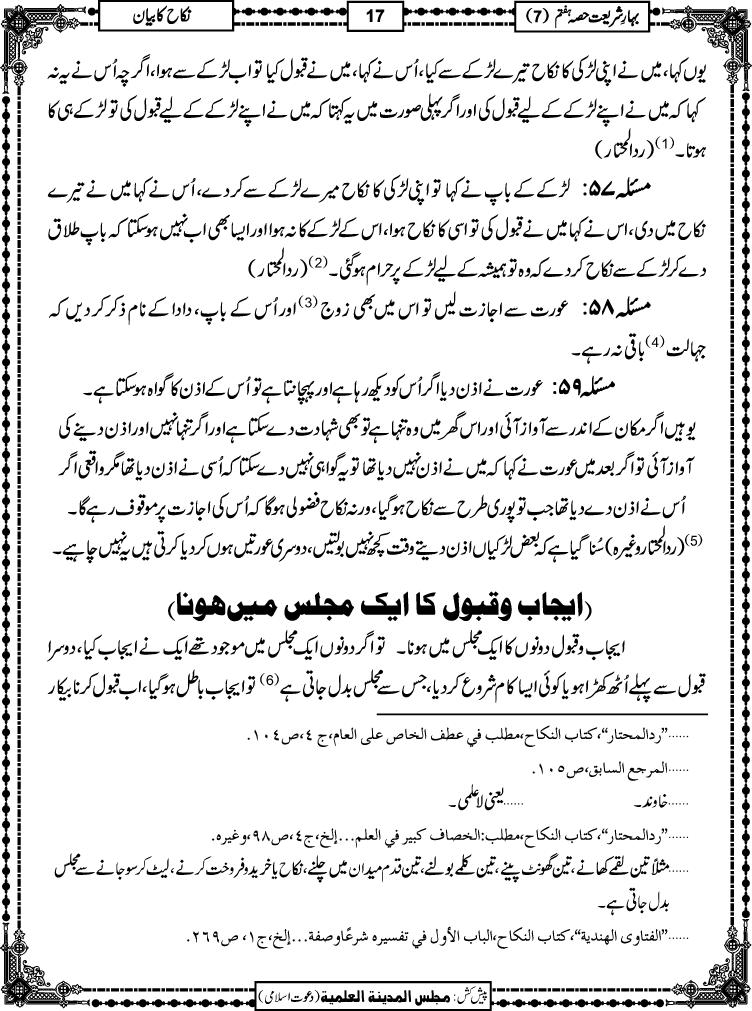 بہارِ شریعت حصہ ہفتم (7)
17
نکاح کا بیان
یوں کہا، میں نے اپنی لڑکی کا نکاح تیرے لڑکے سے کیا، اُس نے کہا، میں نے قبول کیا تو اب لڑکے سے ہوا، اگرچہ اُس نے یہ نہ
کہا کہ میں نے اپنے لڑکے کے لیے قبول کی اور اگر پہلی صورت میں یہ کہتا کہ میں نے اپنے لڑکے کے لیے قبول کی تو لڑکے ہی کا
ہوتا۔(1) (ردالمحتار)
مسئلہ ۵۷: لڑکے کے باپ نے کہا تو اپنی لڑکی کا نکاح میرے لڑکے سے کردے، اُس نے کہا میں نے تیرے
نکاح میں دی، اس نے کہا میں نے قبول کی تو اسی کا نکاح ہوا، اس کے لڑکے کا نہ ہوا اور ایسا بھی اب نہیں ہوسکتا کہ باپ طلاق
دے کر لڑکے سے نکاح کردے کہ وہ تو ہمیشہ کے لیے لڑکے پر حرام ہوگئی۔(2) (ردالمحتار)
مسئلہ ۵۸: عورت سے اجازت لیں تو اس میں بھی زوج(3) اور اُس کے باپ، دادا کے نام ذکر کردیں کہ
جہالت(4) باقی نہ رہے۔
مسئلہ ۵۹: عورت نے اذن دیا اگر اُس کو دیکھ رہا ہے اور پہچانتا ہے تو اُس کے اذن کا گواہ ہوسکتا ہے۔
یوہیں اگر مکان کے اندر سے آواز آئی اور اس گھر میں وہ تنہا ہے تو بھی شہادت دے سکتا ہے اور اگر تنہا نہیں اور اذن دینے کی
آواز آئی تو اگر بعد میں عورت نے کہا کہ میں نے اذن نہیں دیا تھا تو یہ گواہی نہیں دے سکتا کہ اُسی نے اذن دیا تھا مگر واقعی اگر
اُس نے اذن دے دیا تھا جب تو پوری طرح سے نکاح ہوگیا، ورنہ نکاح فضولی ہوگا کہ اُس کی اجازت پر موقوف رہے گا۔
(5)(ردالمحتار وغیرہ) سُنا گیا ہے کہ بعض لڑکیاں اذن دیتے وقت کچھ نہیں بولتیں، دوسری عورتیں ہوں کردیا کرتی ہیں یہ نہیں چاہیے۔
(ایجاب وقبول کا ایک مجلس میں ہونا)
ایجاب وقبول دونوں کا ایک مجلس میں ہونا۔ تو اگر دونوں ایک مجلس میں موجود تھے ایک نے ایجاب کیا، دوسرا
قبول سے پہلے اُٹھ کھڑا ہو یا کوئی ایسا کام شروع کردیا، جس سے مجلس بدل جاتی ہے(6) تو ایجاب باطل ہوگیا، اب قبول کرنا بیکار
......"ردالمحتار"، کتاب النکاح،مطلب في عطف الخاص على العام،ج ٤،ص ١٠٤.
......المرجع السابق،ص ١٠٥.
......خاوند۔ ......یعنی لاعلمی۔
......"ردالمحتار"، کتاب النکاح، مطلب:الخصاف كبير في العلم...إلخ،ج٤،ص٩٨،وغیرہ.
......مثلاً تین لقمے کھانے، تین گھونٹ پینے، تین کلمے بولنے، تین قدم میدان میں چلنے، نکاح یا خرید وفروخت کرنے، لیٹ کر سوجانے سے مجلس
بدل جاتی ہے۔
......"الفتاوی الهندية"، کتاب النکاح،الباب الأول في تفسيره شرعًا وصفة...إلخ،ج١، ص٢٦٩.
پیش کش: مجلس المدينة العلمية (دعوت اسلامی)